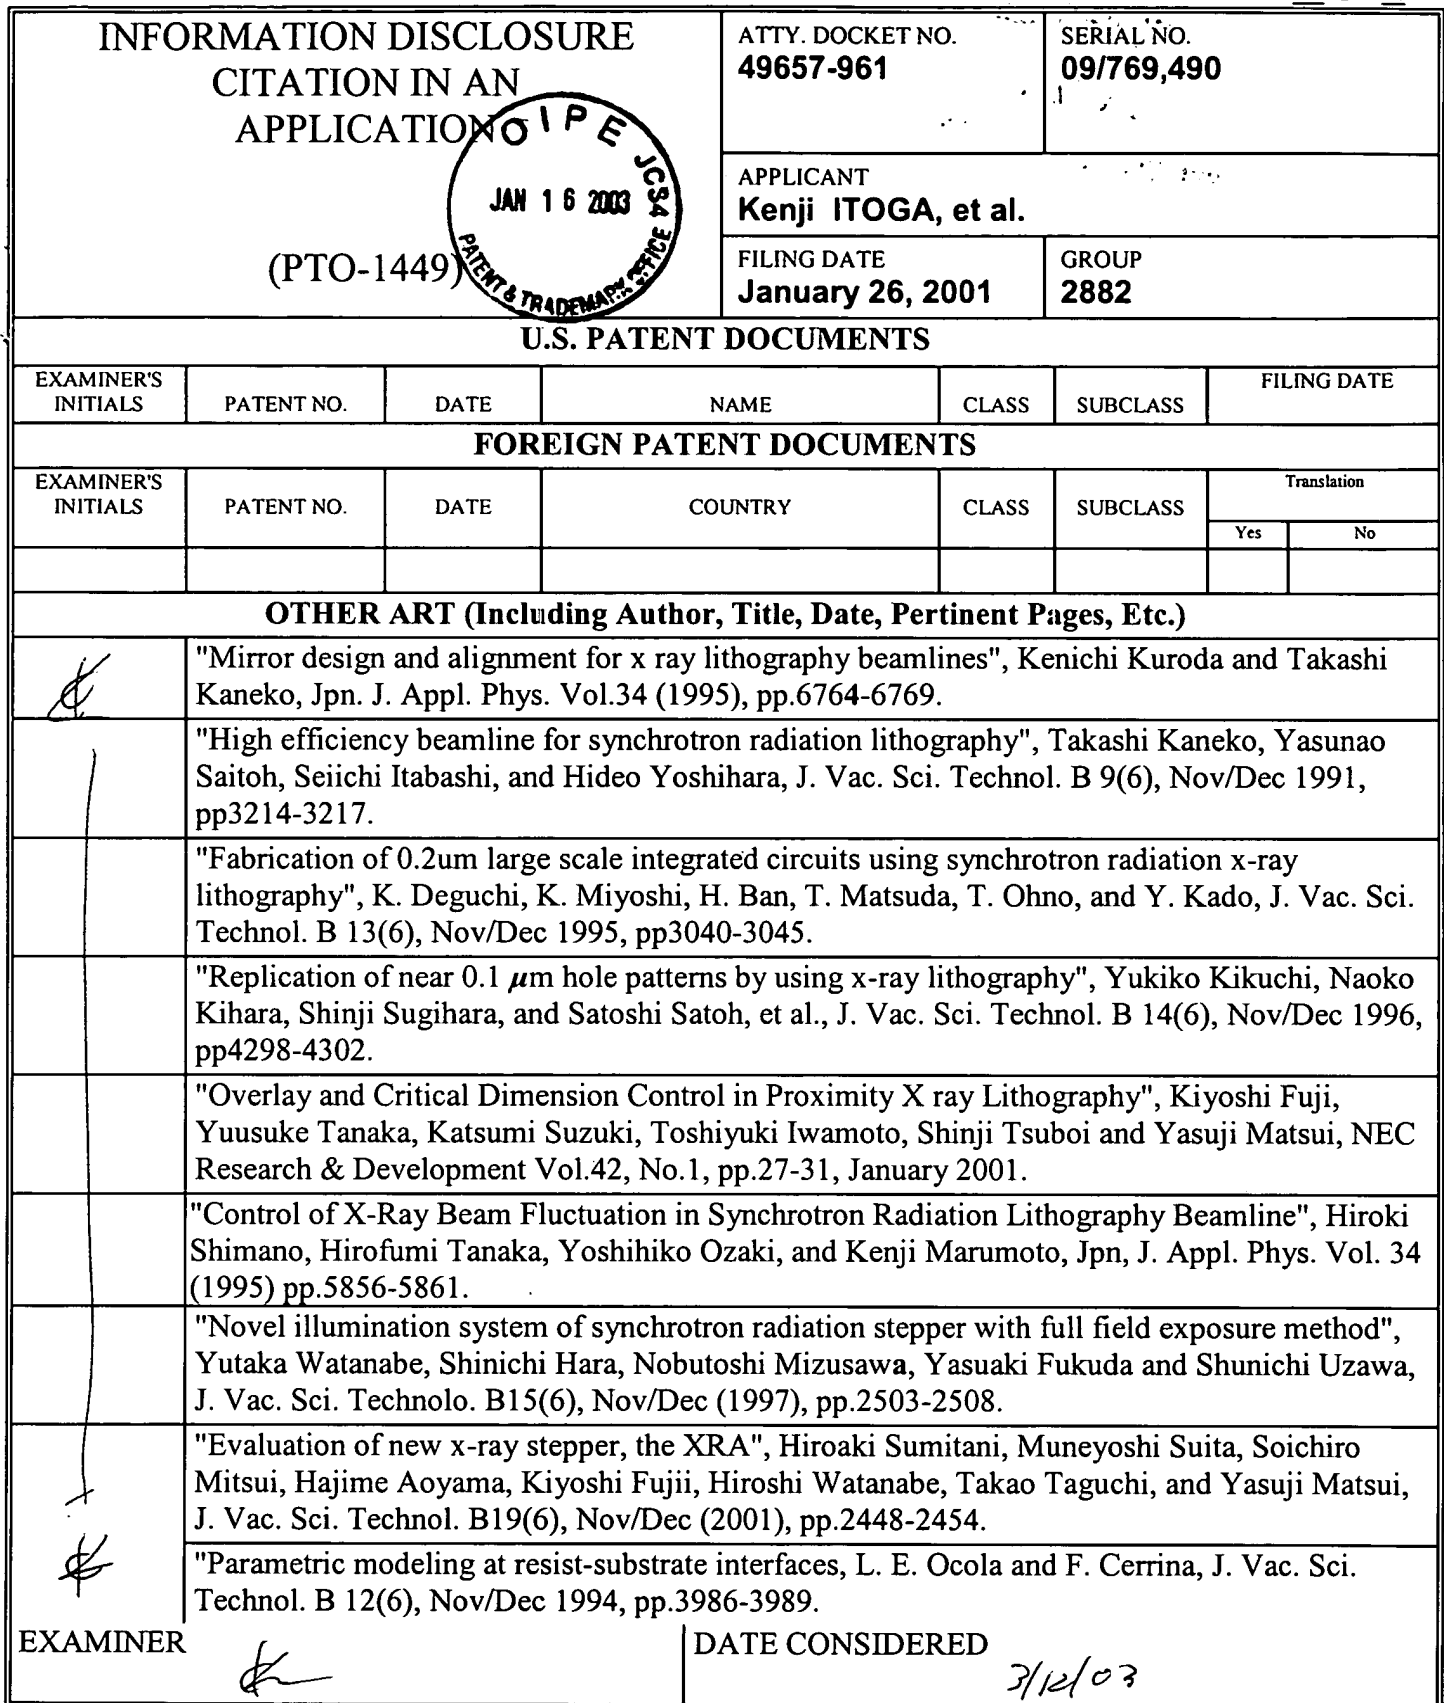 INFORMATION DISCLOSURE
CITATION IN AN
APPLICATION
(PTO-1449)
OIPE JCS4
JAN 16 2003
PATENT & TRADEMARK OFFICE
ATTY. DOCKET NO.
49657-961
SERIAL NO.
09/769,490
APPLICANT
Kenji ITOGA, et al.
FILING DATE
January 26, 2001
GROUP
2882
U.S. PATENT DOCUMENTS
EXAMINER'S
INITIALS
PATENT NO.
DATE
NAME
CLASS
SUBCLASS
FILING DATE
FOREIGN PATENT DOCUMENTS
EXAMINER'S
INITIALS
PATENT NO.
DATE
COUNTRY
CLASS
SUBCLASS
Translation
Yes
No
OTHER ART (Including Author, Title, Date, Pertinent Pages, Etc.)
"Mirror design and alignment for x ray lithography beamlines", Kenichi Kuroda and Takashi
Kaneko, Jpn. J. Appl. Phys. Vol.34 (1995), pp.6764-6769.
"High efficiency beamline for synchrotron radiation lithography", Takashi Kaneko, Yasunao
Saitoh, Seiichi Itabashi, and Hideo Yoshihara, J. Vac. Sci. Technol. B 9(6), Nov/Dec 1991,
pp3214-3217.
"Fabrication of 0.2um large scale integrated circuits using synchrotron radiation x-ray
lithography", K. Deguchi, K. Miyoshi, H. Ban, T. Matsuda, T. Ohno, and Y. Kado, J. Vac. Sci.
Technol. B 13(6), Nov/Dec 1995, pp3040-3045.
"Replication of near 0.1 μm hole patterns by using x-ray lithography", Yukiko Kikuchi, Naoko
Kihara, Shinji Sugihara, and Satoshi Satoh, et al., J. Vac. Sci. Technol. B 14(6), Nov/Dec 1996,
pp4298-4302.
"Overlay and Critical Dimension Control in Proximity X ray Lithography", Kiyoshi Fuji,
Yuusuke Tanaka, Katsumi Suzuki, Toshiyuki Iwamoto, Shinji Tsuboi and Yasuji Matsui, NEC
Research & Development Vol.42, No.1, pp.27-31, January 2001.
"Control of X-Ray Beam Fluctuation in Synchrotron Radiation Lithography Beamline", Hiroki
Shimano, Hirofumi Tanaka, Yoshihiko Ozaki, and Kenji Marumoto, Jpn, J. Appl. Phys. Vol. 34
(1995) pp.5856-5861.
"Novel illumination system of synchrotron radiation stepper with full field exposure method",
Yutaka Watanabe, Shinichi Hara, Nobutoshi Mizusawa, Yasuaki Fukuda and Shunichi Uzawa,
J. Vac. Sci. Technolo. B15(6), Nov/Dec (1997), pp.2503-2508.
"Evaluation of new x-ray stepper, the XRA", Hiroaki Sumitani, Muneyoshi Suita, Soichiro
Mitsui, Hajime Aoyama, Kiyoshi Fujii, Hiroshi Watanabe, Takao Taguchi, and Yasuji Matsui,
J. Vac. Sci. Technol. B19(6), Nov/Dec (2001), pp.2448-2454.
"Parametric modeling at resist-substrate interfaces, L. E. Ocola and F. Cerrina, J. Vac. Sci.
Technol. B 12(6), Nov/Dec 1994, pp.3986-3989.
EXAMINER
DATE CONSIDERED
3/12/03